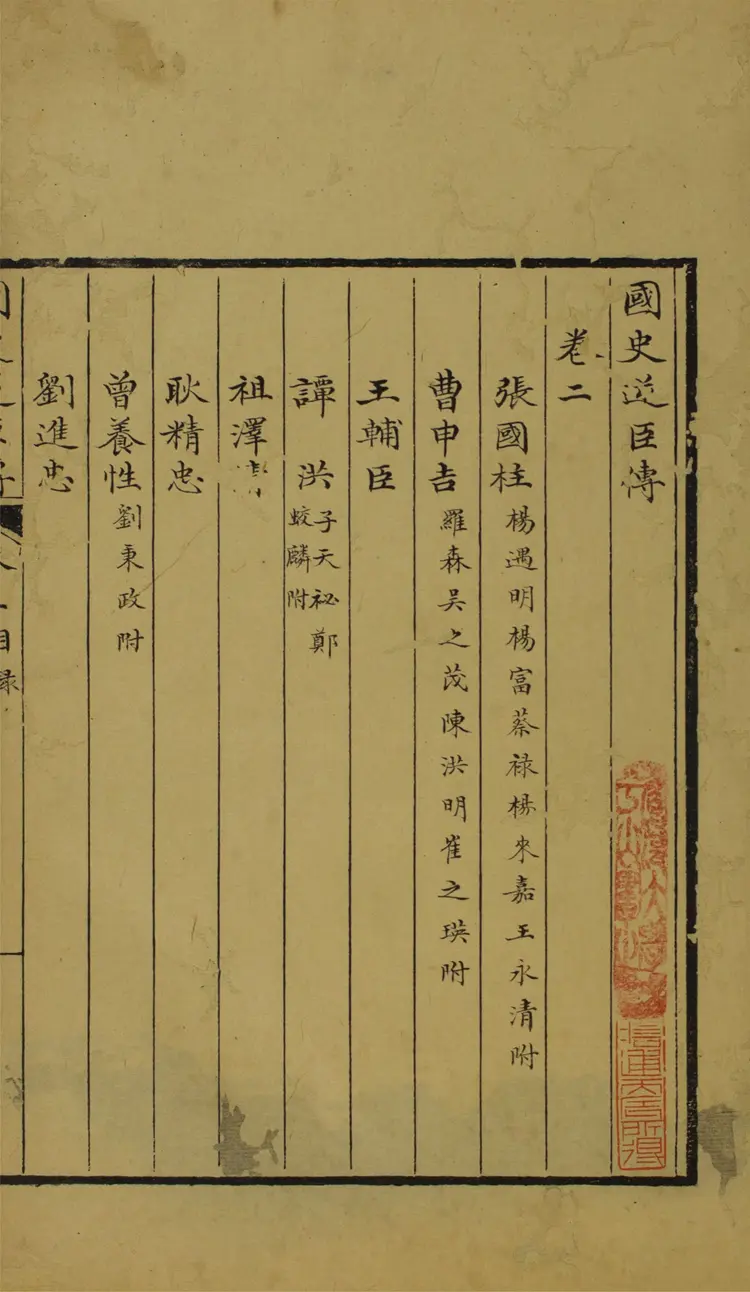 國史逆臣傳
卷二
張國柱 楊遇明楊富蔡祿楊來嘉王永清附
曹申吉 羅森吴之茂陳洪明崔之瑛附
王輔臣
譚洪 子天祕鄭蛟麟附
祖澤
耿精忠
曾養性 劉秉政附
劉進忠
目録